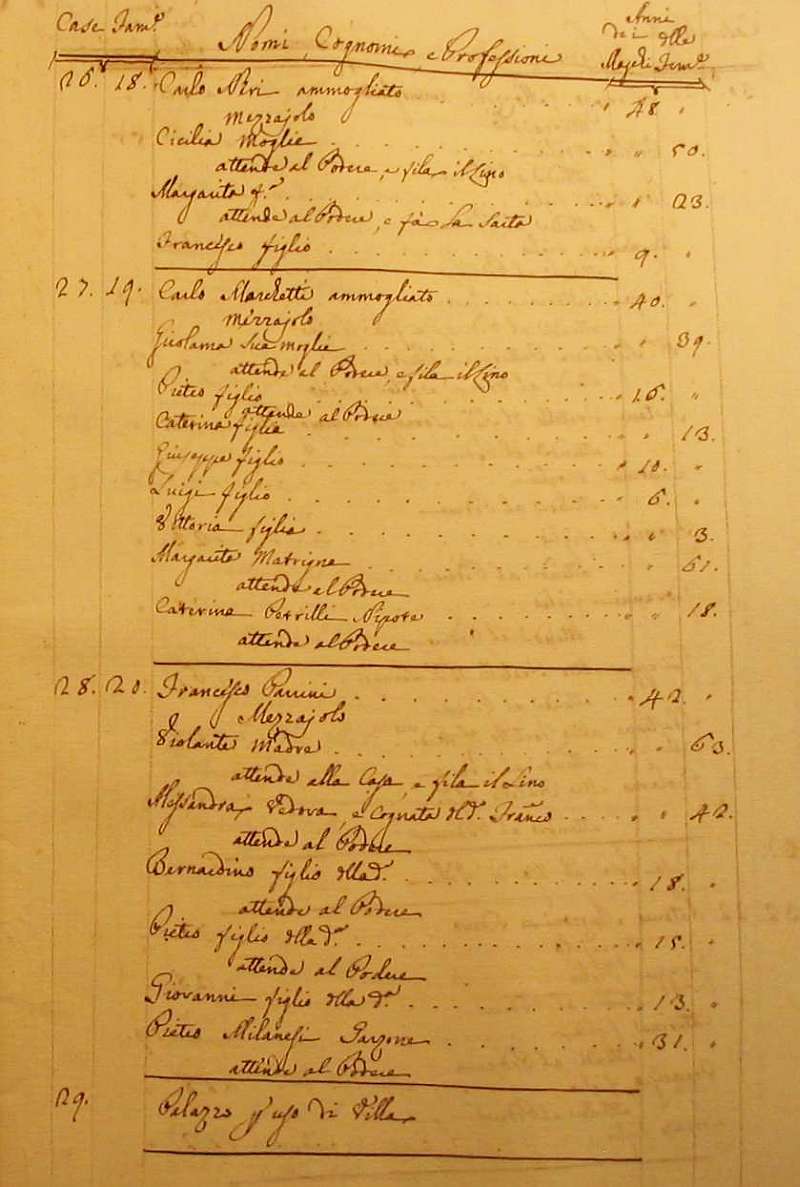 Case Fam.e Nomi, Cognomi, e Professioni Anni
dei delle
Maschi Fem.e
26. 18. Carlo Neri ammogliato 48. "
Mezzajolo
Cicilia Moglie " 50.
attende al Podere, e fila il Lino
Margarita f.a " 23.
attende al Podere, e fà la Saita
Francesco figlio 9. "
27. 19. Carlo Marchetti ammogliato 40. "
Mezzajolo
Girolama sua moglie " 39.
attende al Podere, e fila il Lino
Pietro figlio 16. "
attende al Podere
Caterina figlia " 13.
Giuseppe figlio 10. "
Luigi figlio 6. "
Vittoria figlia " 3.
Margarita Matrigna " 61.
attende al Podere
Caterina Petrilli Nipote " 18.
attende al Podere
28. 20. Francesco Parrini 42. "
Mezzajolo
Violante Madre " 63.
attende alla Casa, e fila il Lino
Alessandra Vedova, e Cognata del d.o Franco " 42.
attende al Podere
Bernardino figlio della d.a 18. "
attende al Podere
Pietro figlio della d.a 15. "
attende al Podere
Giovanni figlio della d.a 13. "
Pietro Milanesi Garzone 31. "
attende al Podere
29. Palazzo p uso di Villa